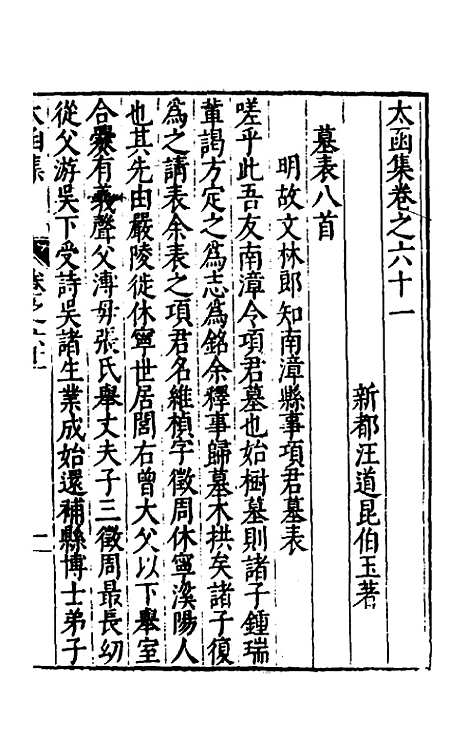 太函集卷之六十一
新都汪道昆伯玉著
墓表八首
明故文林郎知南漳縣事項君墓表
嗟乎此吾友南漳令項君墓也始樹墓則諸子鍾瑞
軰謁方定之為志為銘余釋事歸墓木拱矣諸子復
為之請表余表之項君名維楨字徵周休寧溪陽人
也其先由嚴陵徙休寧世居閭右曾大父以下舉室
合爨有義聲父溥母張氏舉丈夫子三徵周最長幼
從父游吳下受詩吳諸生業成始還補縣博士弟子
太函集 卷之六十一 一